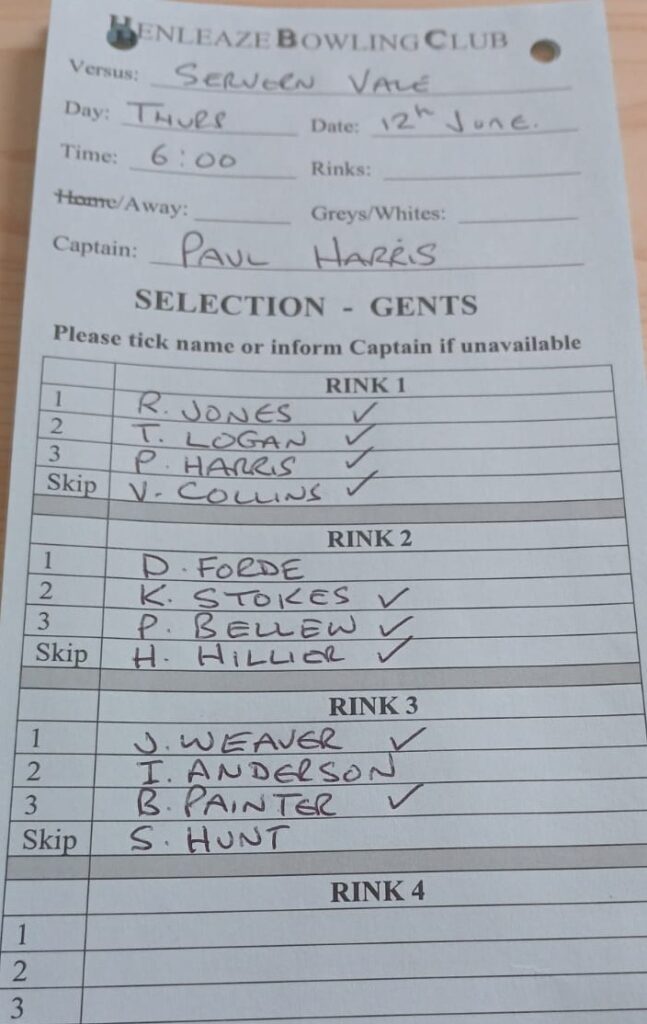 HENLEAZE BOWLING CLUB
Versus: SERVERN VALE
Day: THURS Date: 12th June.
Time: 6:00 Rinks:
Home/Away: Greys/Whites:
Captain: PAUL HARRIS
SELECTION - GENTS
Please tick name or inform Captain if unavailable
RINK 1
1 R. JONES ✓
2 T. LOGAN ✓
3 P. HARRIS ✓
Skip V. COLLINS ✓
RINK 2
1 D. FORDE
2 K. STOKES ✓
3 P. BELLEW ✓
Skip H. HILLIER ✓
RINK 3
1 J. WEAVER ✓
2 I. ANDERSON
3 B. PAINTER ✓
Skip S. HUNT
RINK 4
1
2
3